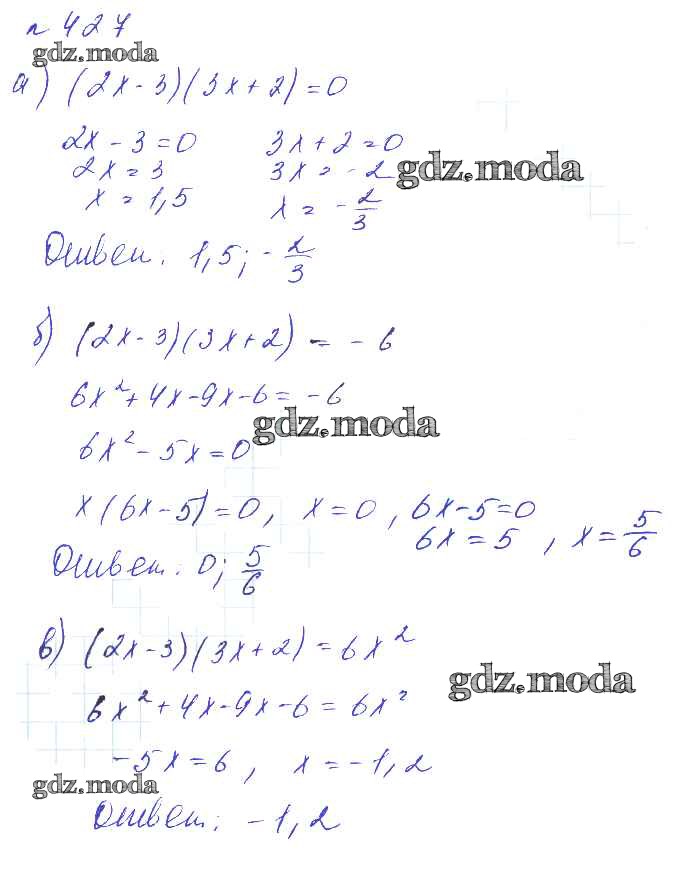 n 427
gdz.moda
а) (2x - 3)(3x + 2) = 0
2x - 3 = 0 3x + 2 = 0
2x = 3 3x = -2 gdz.moda
x = 1,5 x = -2/3
Ответ. 1,5; -2/3
б) (2x - 3)(3x + 2) = -6
6x² + 4x - 9x - 6 = -6
gdz.moda
6x² - 5x = 0
x(6x - 5) = 0, x = 0, 6x - 5 = 0
6x = 5, x = 5/6
Ответ. 0; 5/6
в) (2x - 3)(3x + 2) = 6x²
gdz.moda
6x² + 4x - 9x - 6 = 6x²
-5x = 6, x = -1,2
gdz.moda
Ответ: -1,2